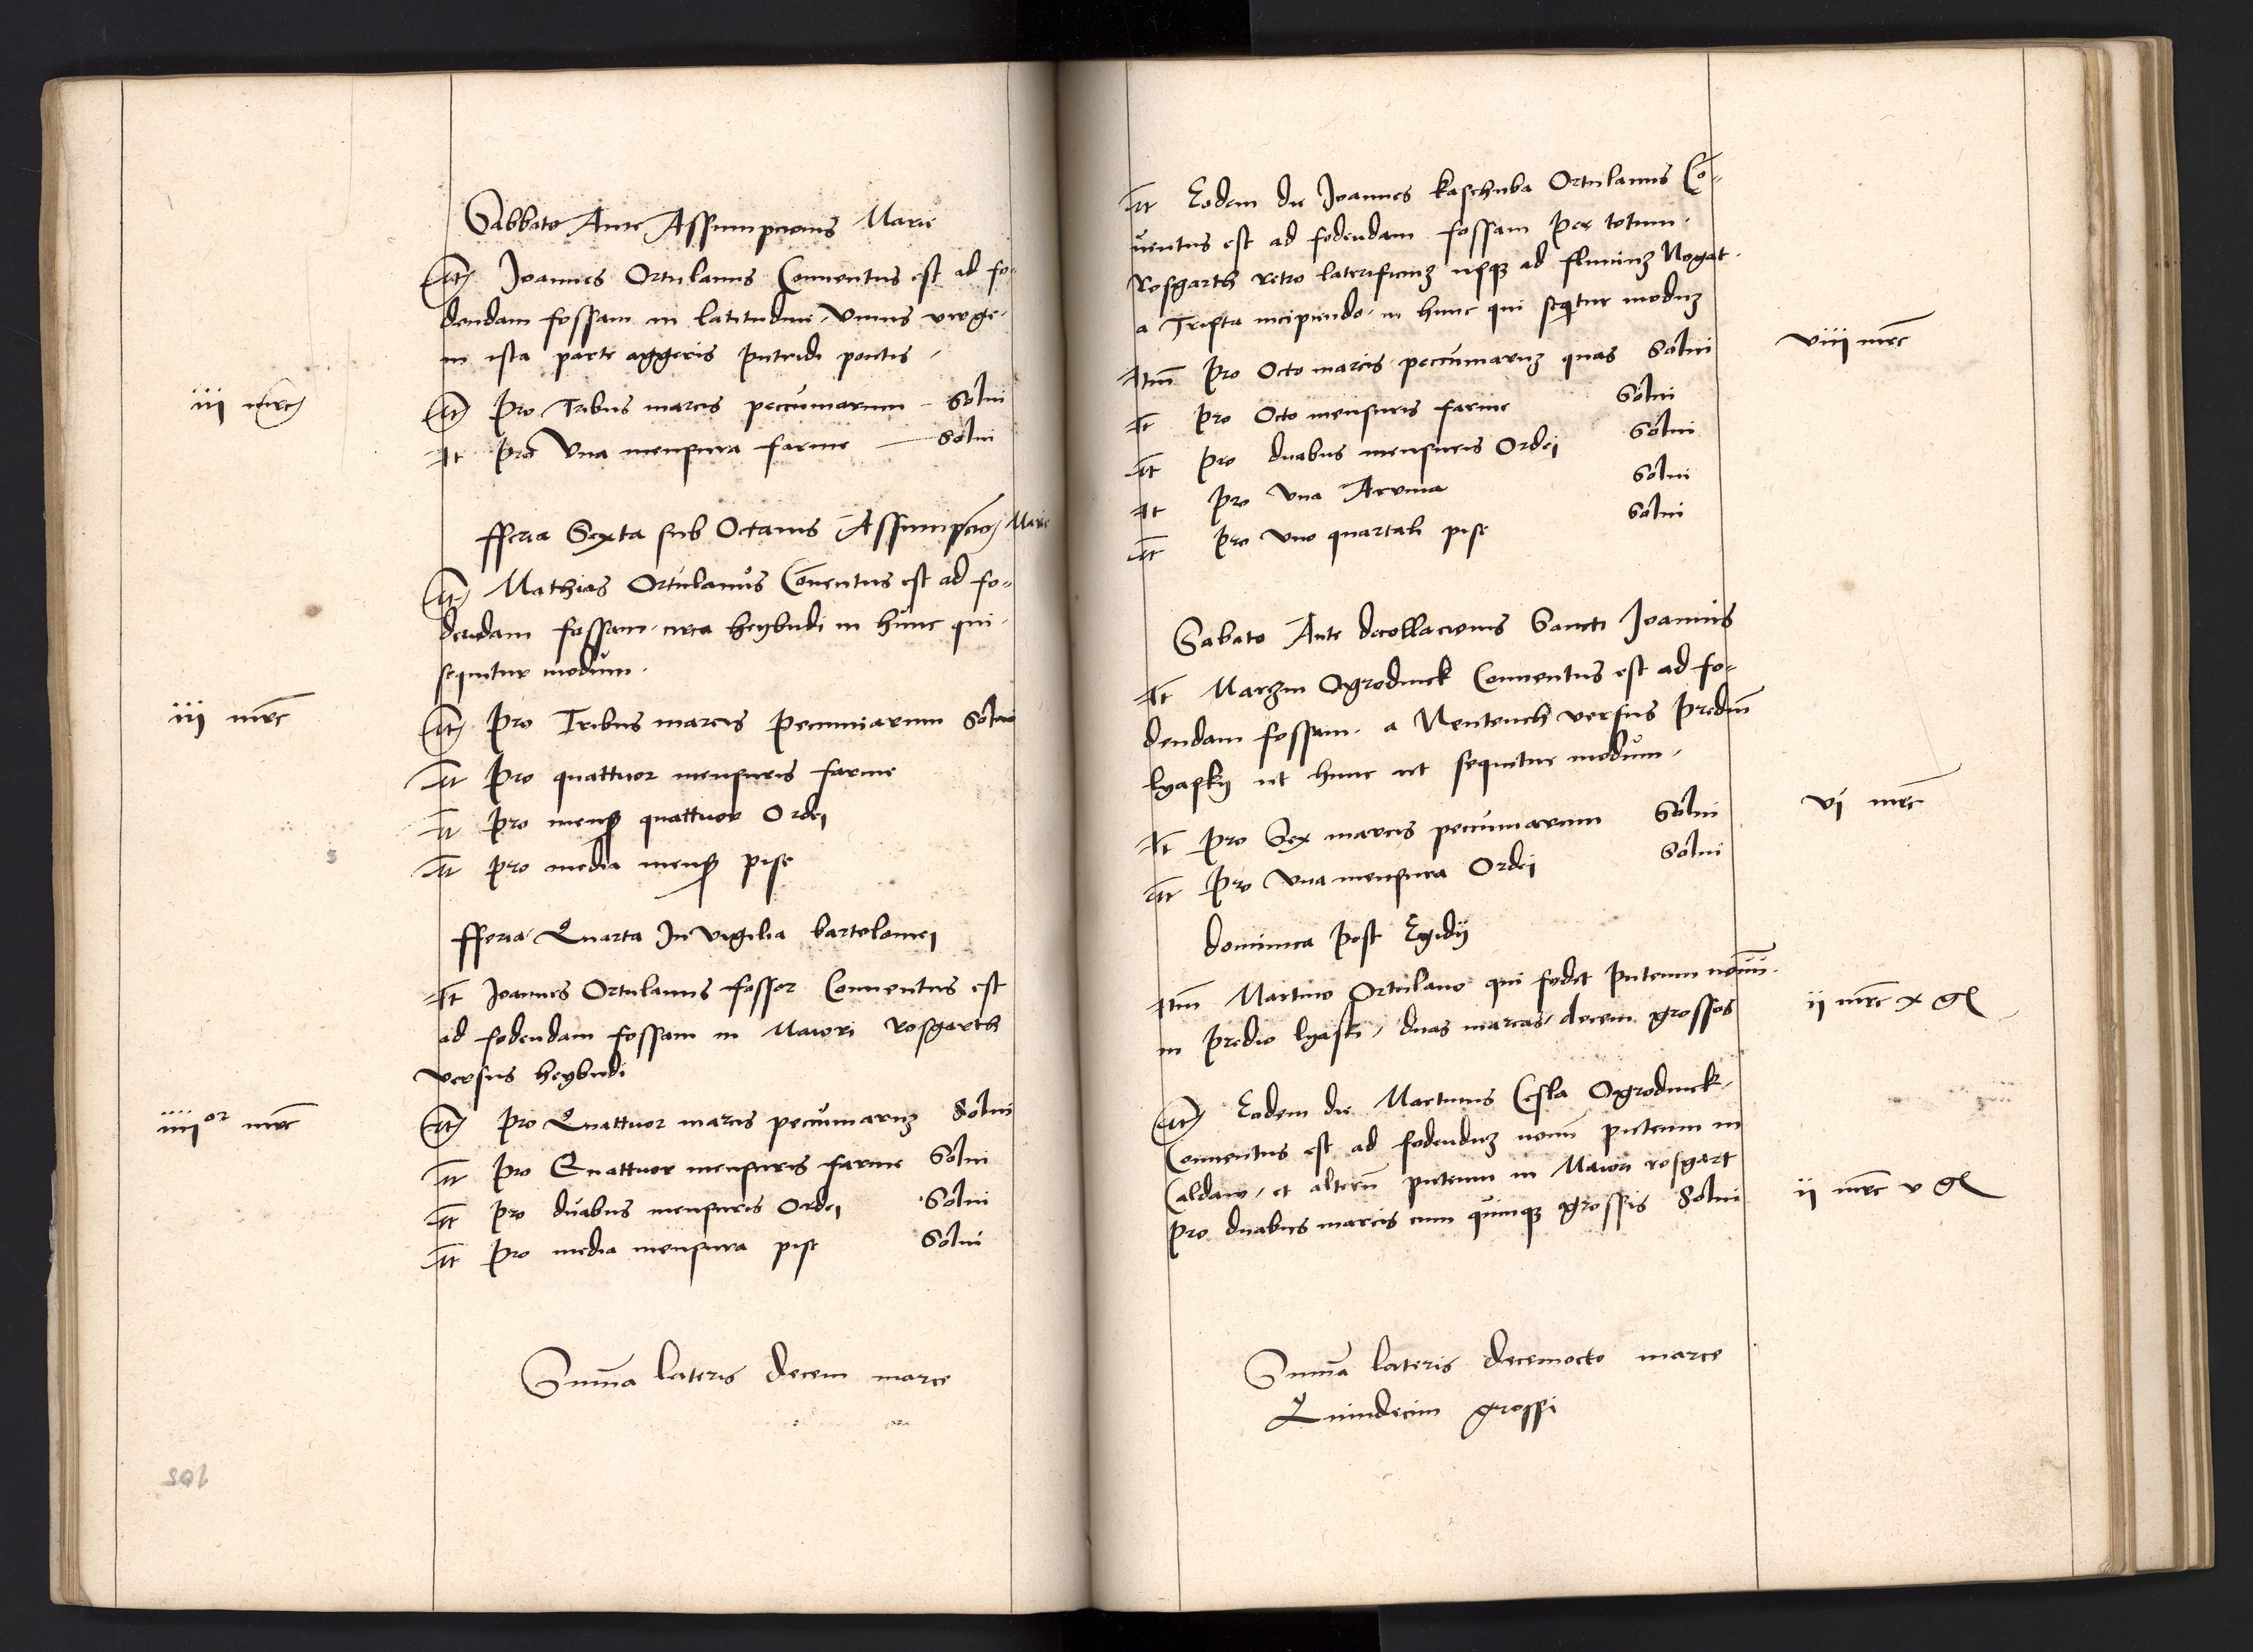 Sabbato Ante Assumpcionis Marie
It Joannes Ortulanus Conuentus est ad fo-
dendam fossam in latitudine Vnius virge
in ista parte aggeris putridi pontis
iii mrc It Pro Tribus marcis peccuniarum Solui
It Pro Vna mensura farine Solui
fferia Sexta sub Octauis Assumpcio Marie
It Mathias Ortulanus Conuentus est ad fo-
dendam fossam circa heybudi in hunc qui
sequitur modum
iii mrc It Pro Tribus marcis Pecuniarum Solui
It Pro quattuor mensuris farine
It Pro mens quattuor Ordei
It Pro media mens pise
fferia Quarta In Vigilia bartolomei
It Joannes Ortulanus fossor Conuentus est
ad fodendam fossam in Maiori rosgarth
versus heybudi
iiii or mrc It Pro Quattuor marcis peccuniarum Solui
It Pro Quattuor mensuris farine Solui
It Pro duabus mensuris Ordei Solui
It Pro media mensura pise Solui
Summa lateris decem marce
It Eodem die Joannes kaschuba Ortulanus Co-
uentus est ad fodendam fossam Per totum
Rosgarth retro laterificium usque ad fluuium Nogat
a Tripta incipiendo in hunc qui sequitur modum
Itm Pro Octo marcis peccuniarum quas Solui viii mrc
It Pro Octo mensuris farine Solui
It Pro duabus mensuris Ordei Solui
It Pro Vna Aruina Solui
It Pro Vno quartali pise Solui
Sabato Ante decollacionis Sancti Joannis
It Marczin Ogrodnick Conuentus est ad fo-
dendam fossam a Nenteuch versus Predium
lyasky ut hunc ut sequitur modum
It Pro Sex marcis peccuniarum Solui vi mrc
It Pro Vna mensura Ordei Solui
dominica Post Egidij
Itm Martino Ortulano qui fodit puteum nouum
in Predio lyaski duas marcas decem grossos ii mrc x gl
It Eodem die Martinus Cesla Ogrodnick
Conuentus est ad fodendum nouum puteum in
Caldaw et alterum puteum in Maiori rosgart
Pro duabus marcis cum quinque grossis Solui ii mrc v gl
Summa lateris decemocto marce
Quindecim grossi